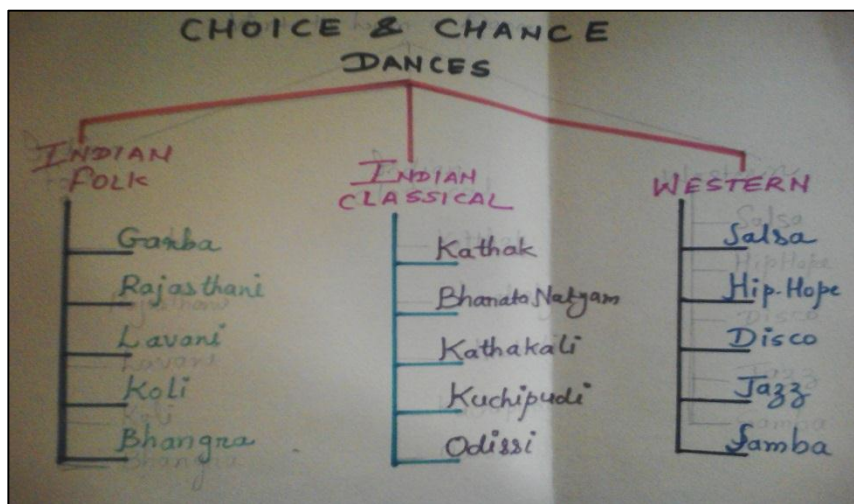 CHOICE & CHANCE
DANCES
INDIAN
FOLK
Garba
Rajasthani
Lavani
Koli
Bhangra
INDIAN
CLASSICAL
Kathak
Bharata Natyam
Kathakali
Kuchipudi
Odissi
WESTERN
Salsa
Hip-Hope
Disco
Jazz
Samba